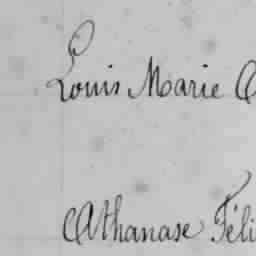 Louis Marie
Athanase Féli